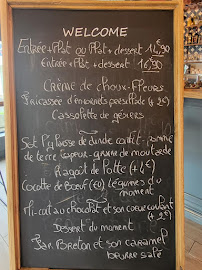 WELCOME
Entrée + Plat ou Plat + dessert 14,90
Entrée + Plat + dessert 16,90
Crème de choux-fleurs
Fricassée d'encornets persillade (+2€)
Cassolette de gésiers
de dinde confit
de terre vapeur - graine de moutarde
Ragoût de lotte (+4€)
Cocotte de Boeuf (EU) légumes du
moment
Mi-cuit au chocolat et son coeur coulant
(+2€)
Dessert du moment
Bar Breton et son caramel
beurre salé